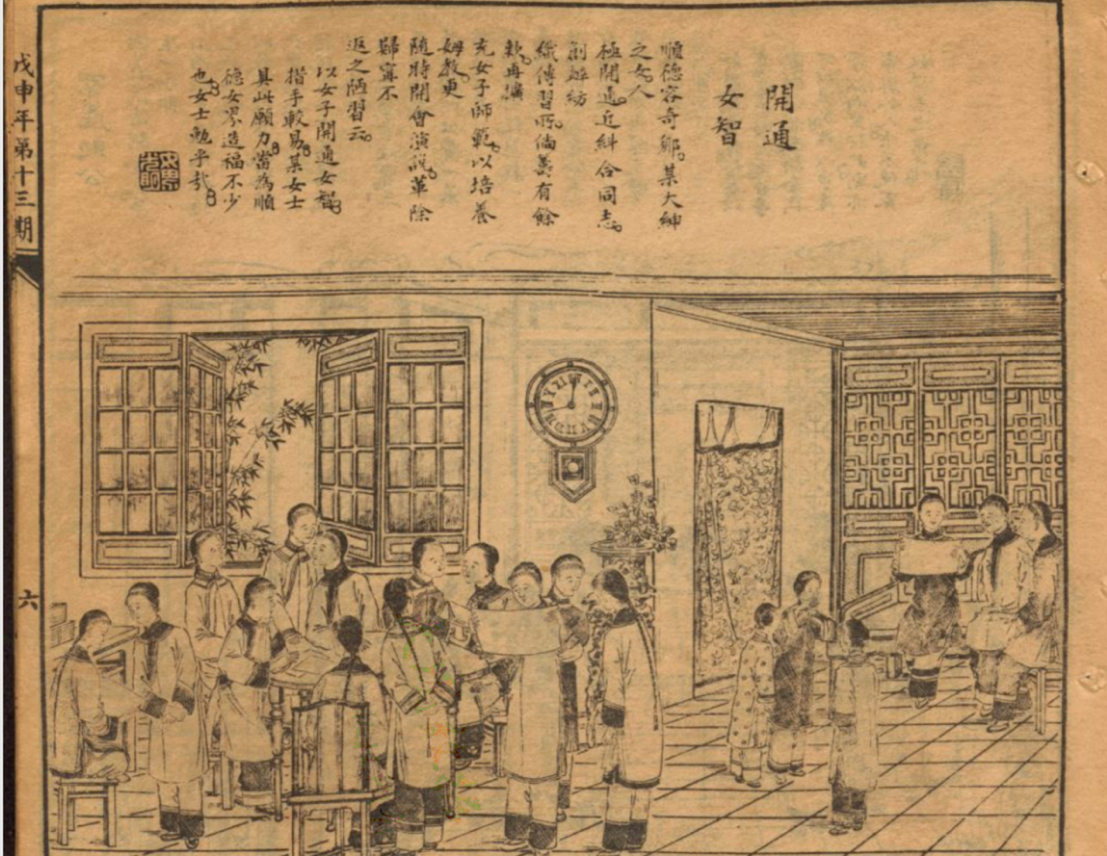 開通
女智
順德容奇鄉。某大紳
之女。人
極開通。近糾合同志。
創辦紡
織傳習所。倘籌有餘
款。再擴
充女子師範。以培養
姆教。更
隨時開會演說。革除
歸寧不
返之陋習云。
以女子開通女智。
措手較易。某女士
具此願力。當為順
德女界造福不少
也。女士勉乎哉。
戊申年第十三期
六